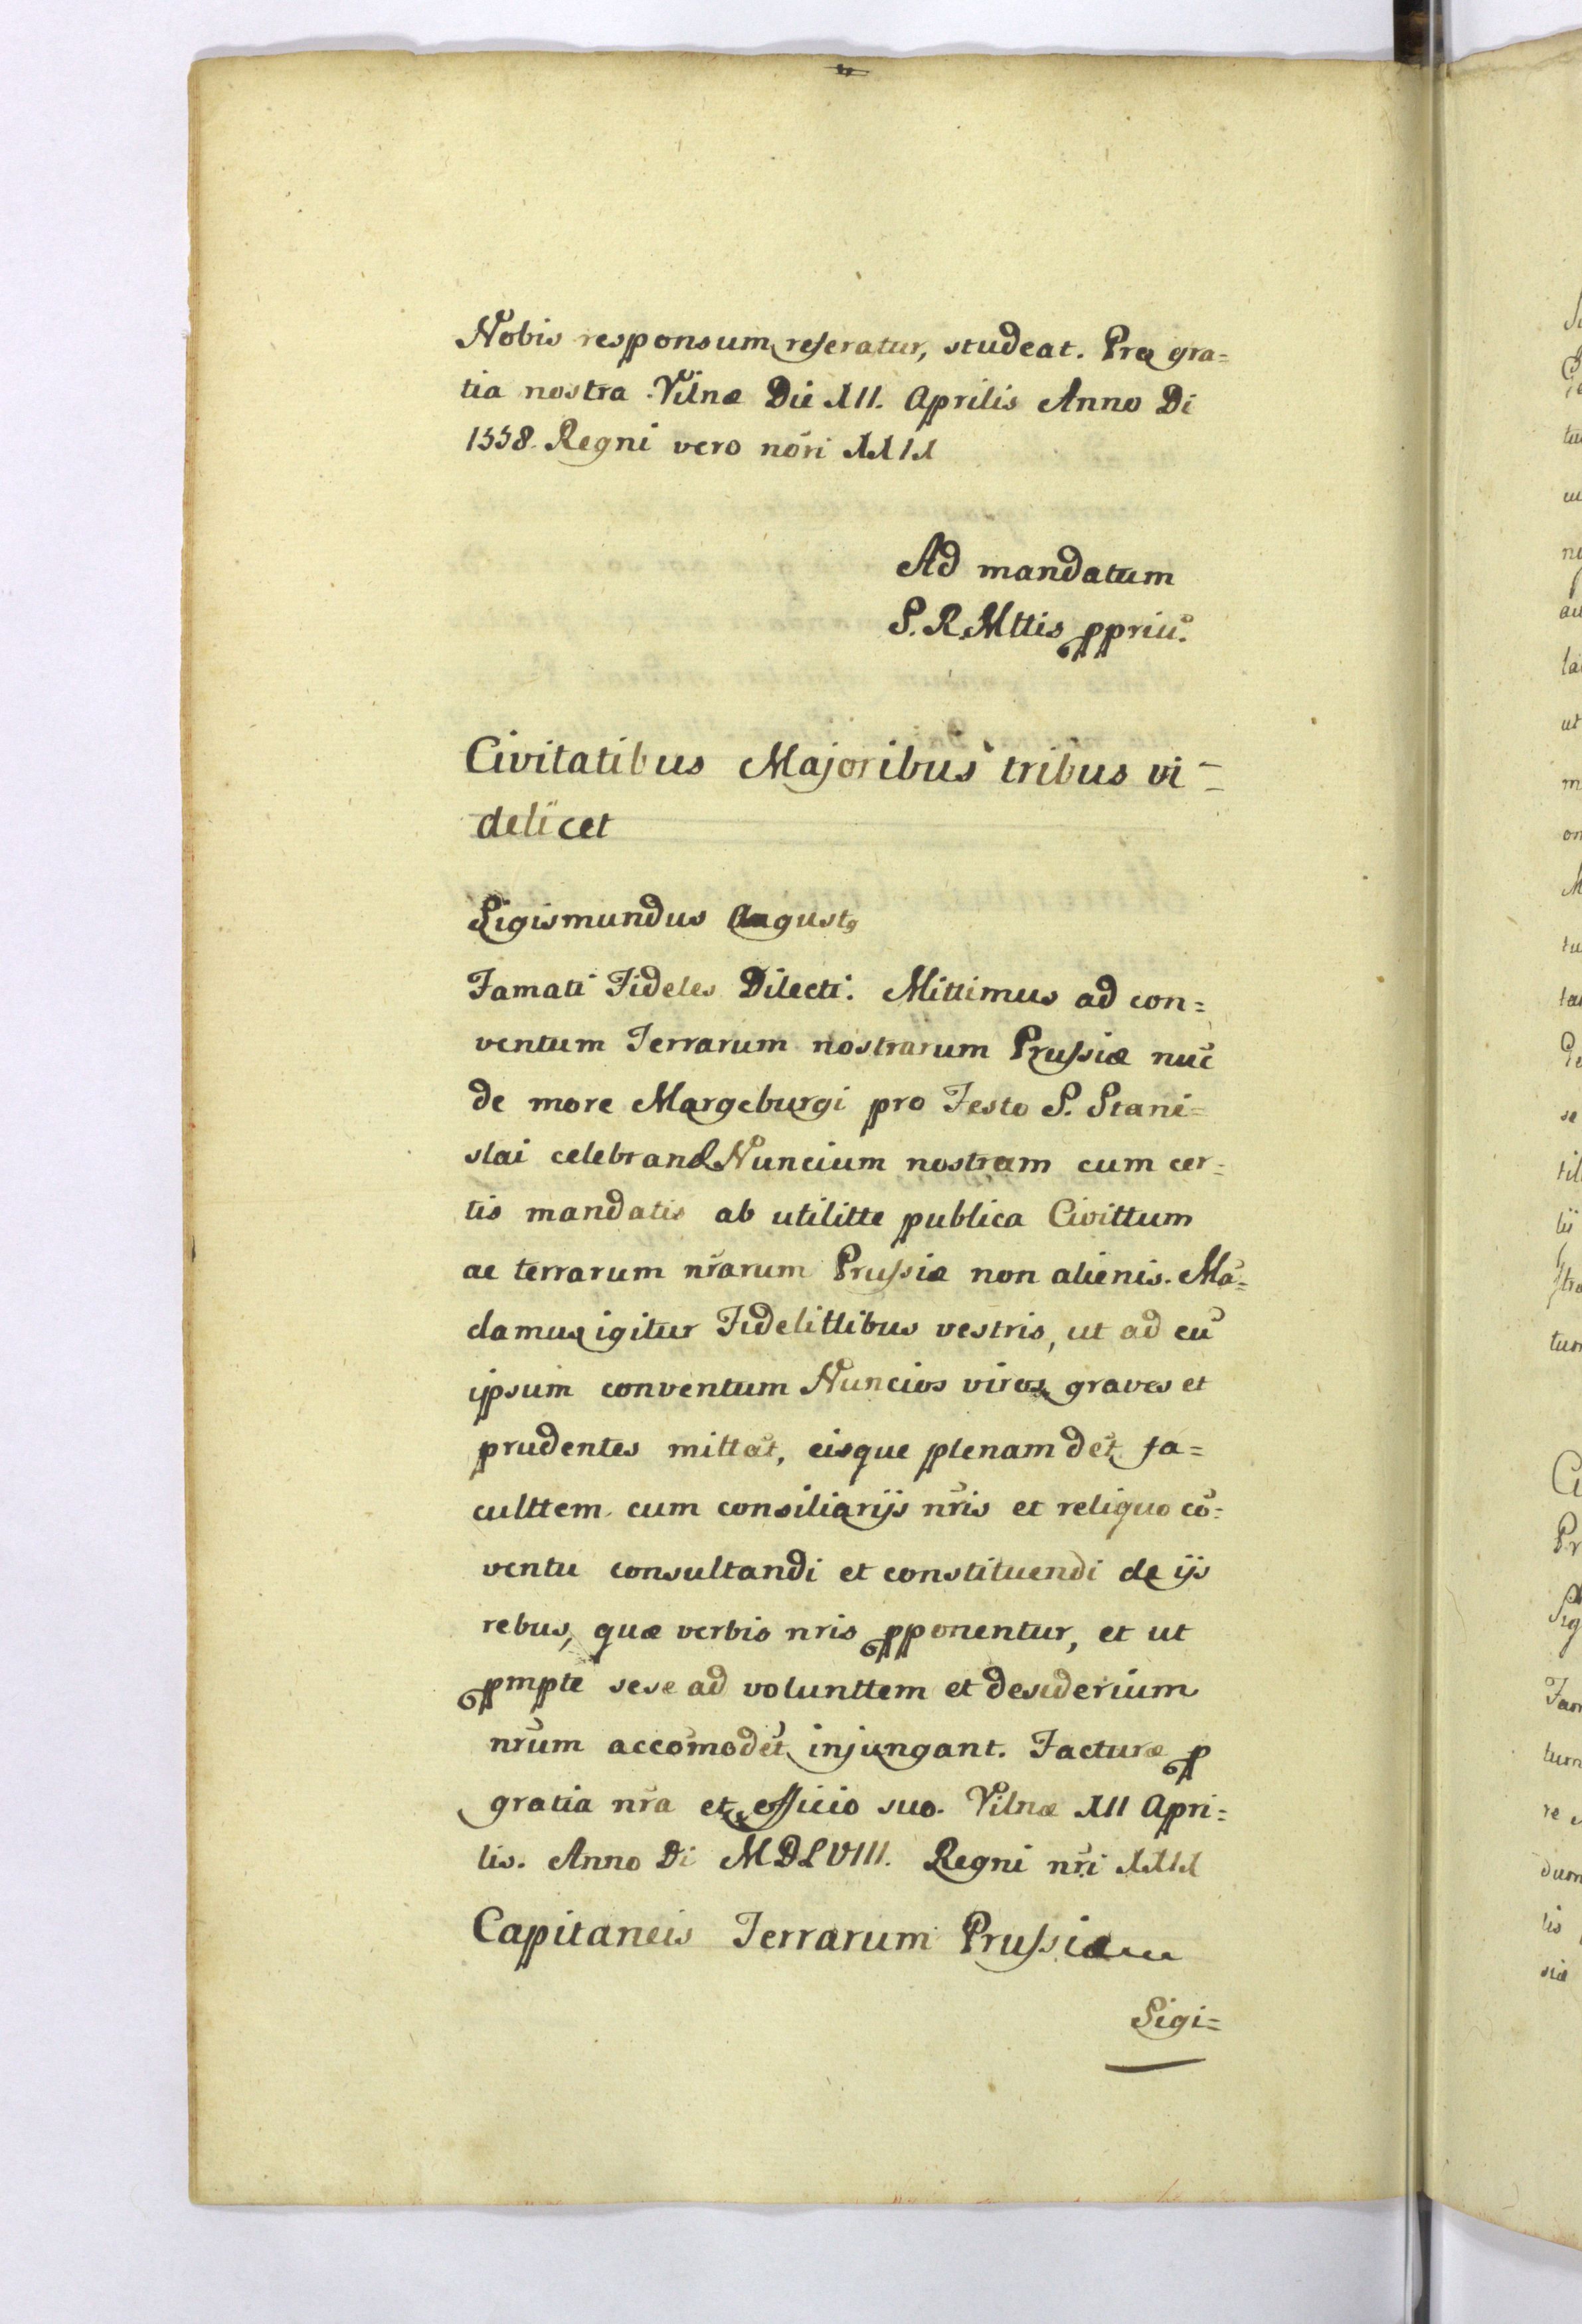 Nobis responsum referatur, studeat. Pro gra=
tia nostra. Vilnæ Die XII. Aprilis Anno Di
1558. Regni vero nōri XXIX
Ad mandatum
S. R. Mttis ppriū.
Civitatibus Majoribus tribus vi=
delicet
Sigismundus August9
Famati Fideles Dilecti. Mittimus ad con=
ventum Terrarum nostrarum Prussiæ nūc
de more Margeburgi pro Festo S. Stani=
slai celebrand Nuncium nostrum cum cer=
tis mandatis ab utilitte publica Civittum
ac terrarum nr̄arum Prussiæ non alienis. Mā=
damus igitur Fidelittibus vestris, ut ad eū
ipsum conventum Nuncios viros graves et
prudentes mittāt, eisque plenam dēt fa=
culttem cum consiliarijs nr̄is et reliquo cō=
ventu consultandi et constituendi de ijs
rebus, quæ verbis nris pponentur, et ut
pmpte sese ad volunttem et desiderium
nr̄um accōmodēt injungant. Facturæ p
gratia nr̄a et officio suo. Vilnæ XII Apri=
lis. Anno Di MDLVIII. Regni nr̄i XXIX
Capitaneis Terrarum Prussiæ
Sigi=